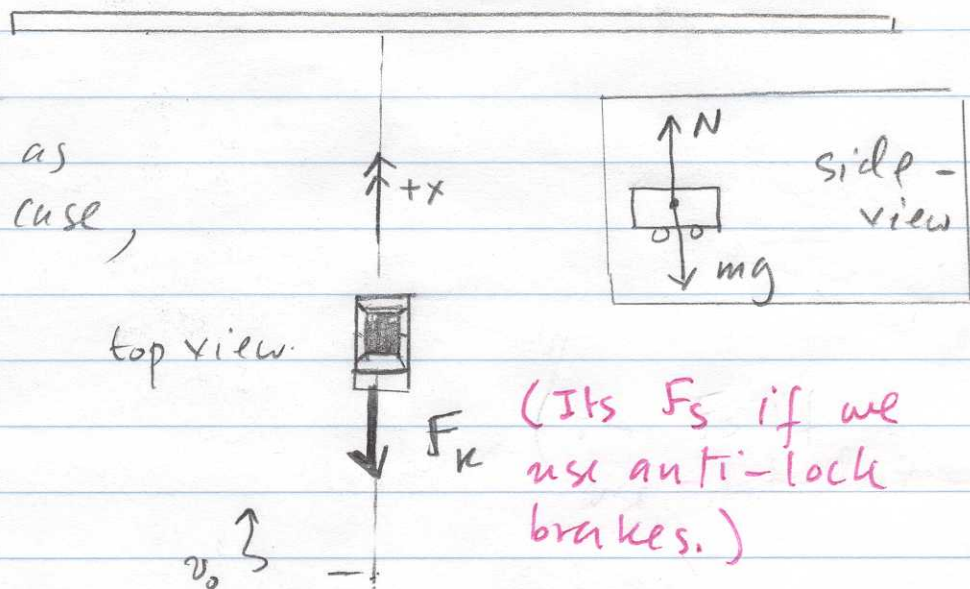 as
case,
+x
N
side-
view
mg
top view.
F_k
(Its F_s if we
use anti-lock
brakes.)
v_0